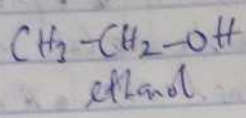 CH₃-CH₂-OH
ethanol